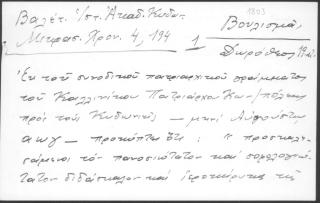 Βαλέτ. Ἱστ. Ἀκαδ. Κυδω. 1803
Μητρασ. Χρον. 4, 194 1 Βουλισμᾶ,
Δωρόθεος
Ἐκ τοῦ συνοδικοῦ πατριαρχικοῦ γράμματος
τοῦ Καλλινίκου Πατριάρχου Κων/πόλεως
πρὸς τοὺς Κυδωνιεῖς — μηνὶ Αὐγούστῳ
αωγ — προκύπτει ὅτι : " προσκαλε-
σάμενοι τὸν πανοσιώτατον καὶ σοφολογιώ-
τατον διδάσκαλον καὶ ἱεροκήρυκα τῆς